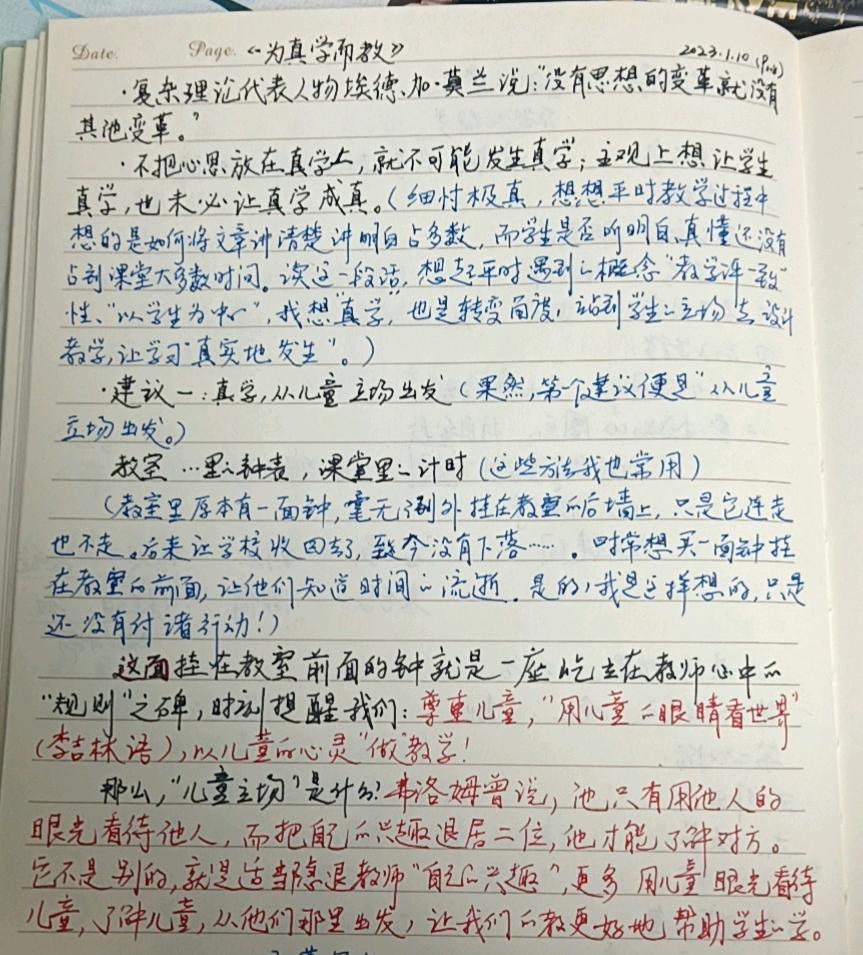 Date. Page. 《为真学而教》 2023.1.10
·复杂理论代表人物埃德、加·莫兰说:“没有思想的变革就没有
其他变革。”
·不把心思放在真学上,就不可能发生真学;主观上想让学生
真学,也未必让真学成真。(细忖极真,想想平时教学过程中
想的是如何将文章讲清楚讲明白占多数,而学生是否听明白、真懂还没有
占到课堂大多数时间。读这一段话,想起平时遇到的概念“教学评一致”
性、“以学生为中心”,我想“真学”,也是转变角度,站到学生的立场去设计
教学,让学习“真实地发生”。)
·建议一:真学,从儿童立场出发(果然,第一个建议便是“从儿童
立场出发。)
教室…里的钟表,课堂里的计时(这些方法我也常用)
(教室里原本有一面钟,毫无例外挂在教室的后墙上,只是它连走
也不走。后来让学校收回去了,至今没有下落……。时常想买一面钟挂
在教室的前面,让他们知道时间的流逝。是的,我是这样想的,只是
还没有付诸行动!)
这面挂在教室前面的钟就是一座屹立在教师心中的
“规则”之碑,时刻提醒我们:尊重儿童,“用儿童的眼睛看世界”
(李吉林语),以儿童的心灵“做”教学!
那么,“儿童立场”是什么?弗洛姆曾说,他只有用他人的
眼光看待他人,而把自己的兴趣退居二位,他才能了解对方。
它不是别的,就是适当隐退教师“自己的兴趣”,更多用儿童眼光看待
儿童,了解儿童,从他们那里出发,让我们的教更好地帮助学生的学。